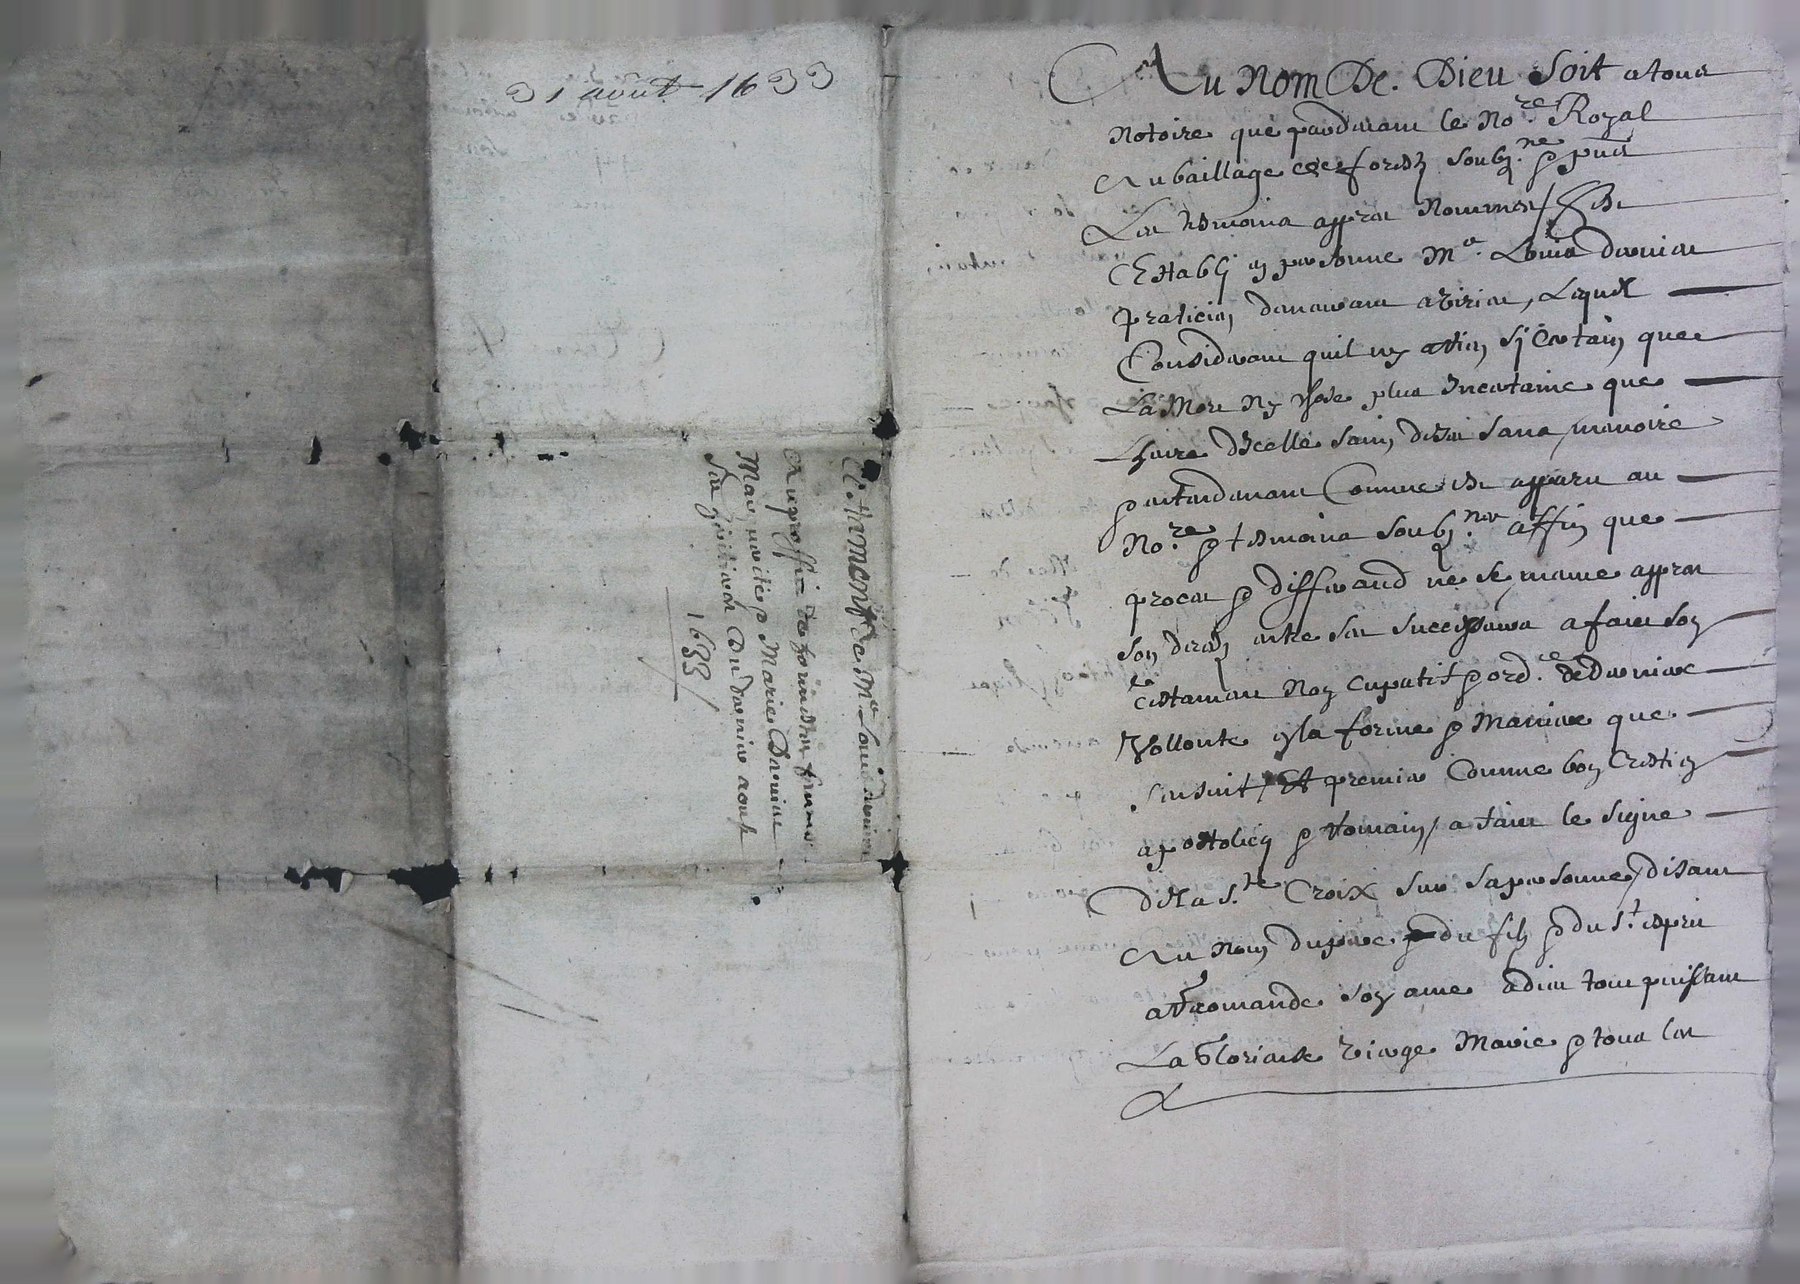 31 août 1633
Testament de Me Louis Davier
Au proffit de
Marguerite et Marie Davier
Du dernier aoust
1633
Au Nom De. Dieu Soit a tous
Notoire que pardevant le Nore. Royal
Au bailliage de forestz soubzne. et pnts
Les tesmoins apprez Nommes / fut
Establi en personne Me. Louis davier
praticien demeurant a , Lequel
Considerant quil ny a rien si Certain que
La Mort Ny chose plus Incertaine que
Lheure dIcelle sain, de sens, memoire
et entendement Comme est apparu au
Nore. et tesmoins soubznez affin que
procez et differand ne se meuve apprez
son decedz entre ses successeurs a faict son
testament Noncupatif et ordce de derniere
Vollonte en la forme et Maniere que
sensuit / Et premier Comme bon Crestien
apostolicq et Romain / a faict le signe
de la Ste. Croix sur sa personne / disant
Au Nom du pere et du filz et du St. esprit
a recomande son ame a dieu tout puissant
La Glorieuse vierge Marie et tous les